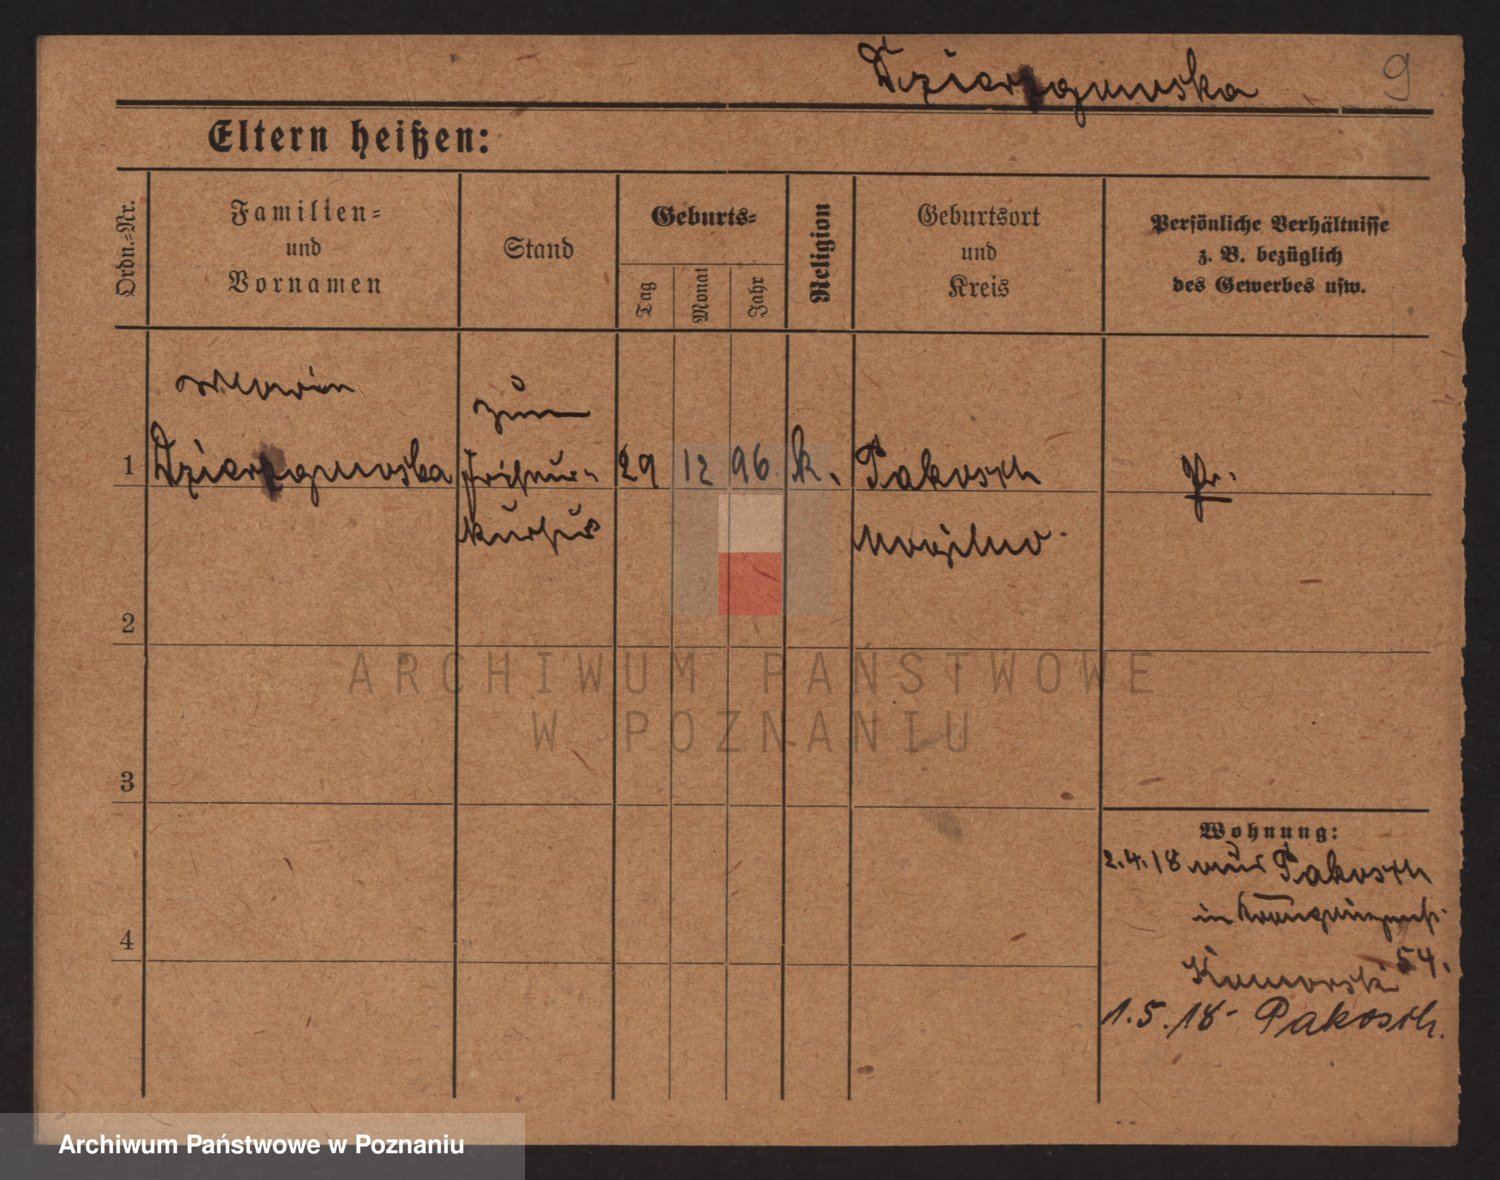 Dzierzgowska 9
Eltern heißen:
Ordn.-Nr.
Familien- und Vornamen
Stand
Geburts-
Tag
Monat
Jahr
Religion
Geburtsort und Kreis
Persönliche Verhältnisse
z. B. bezüglich
des Gewerbes usw.
Maria
zum
1 Dzierzgowska Friseur- 29 12 96 k. Pakosch Pr.
kursus Mogilno
2
3
4
Wohnung:
2.4.18 aus Pakosch
in
54.
1.5.18 Pakosch.
ARCHIWUM PAŃSTWOWE
W POZNANIU
Archiwum Państwowe w Poznaniu